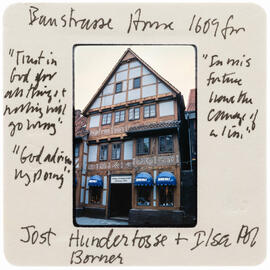 Banstrasse House 1609 for
"Trust in
God for
all things &
nothing will
go wrong"
"God advises
my doing"
"In mis
fortune
have the
courage of
a lion."
Jost Hundertosse + Ilsa
Borner